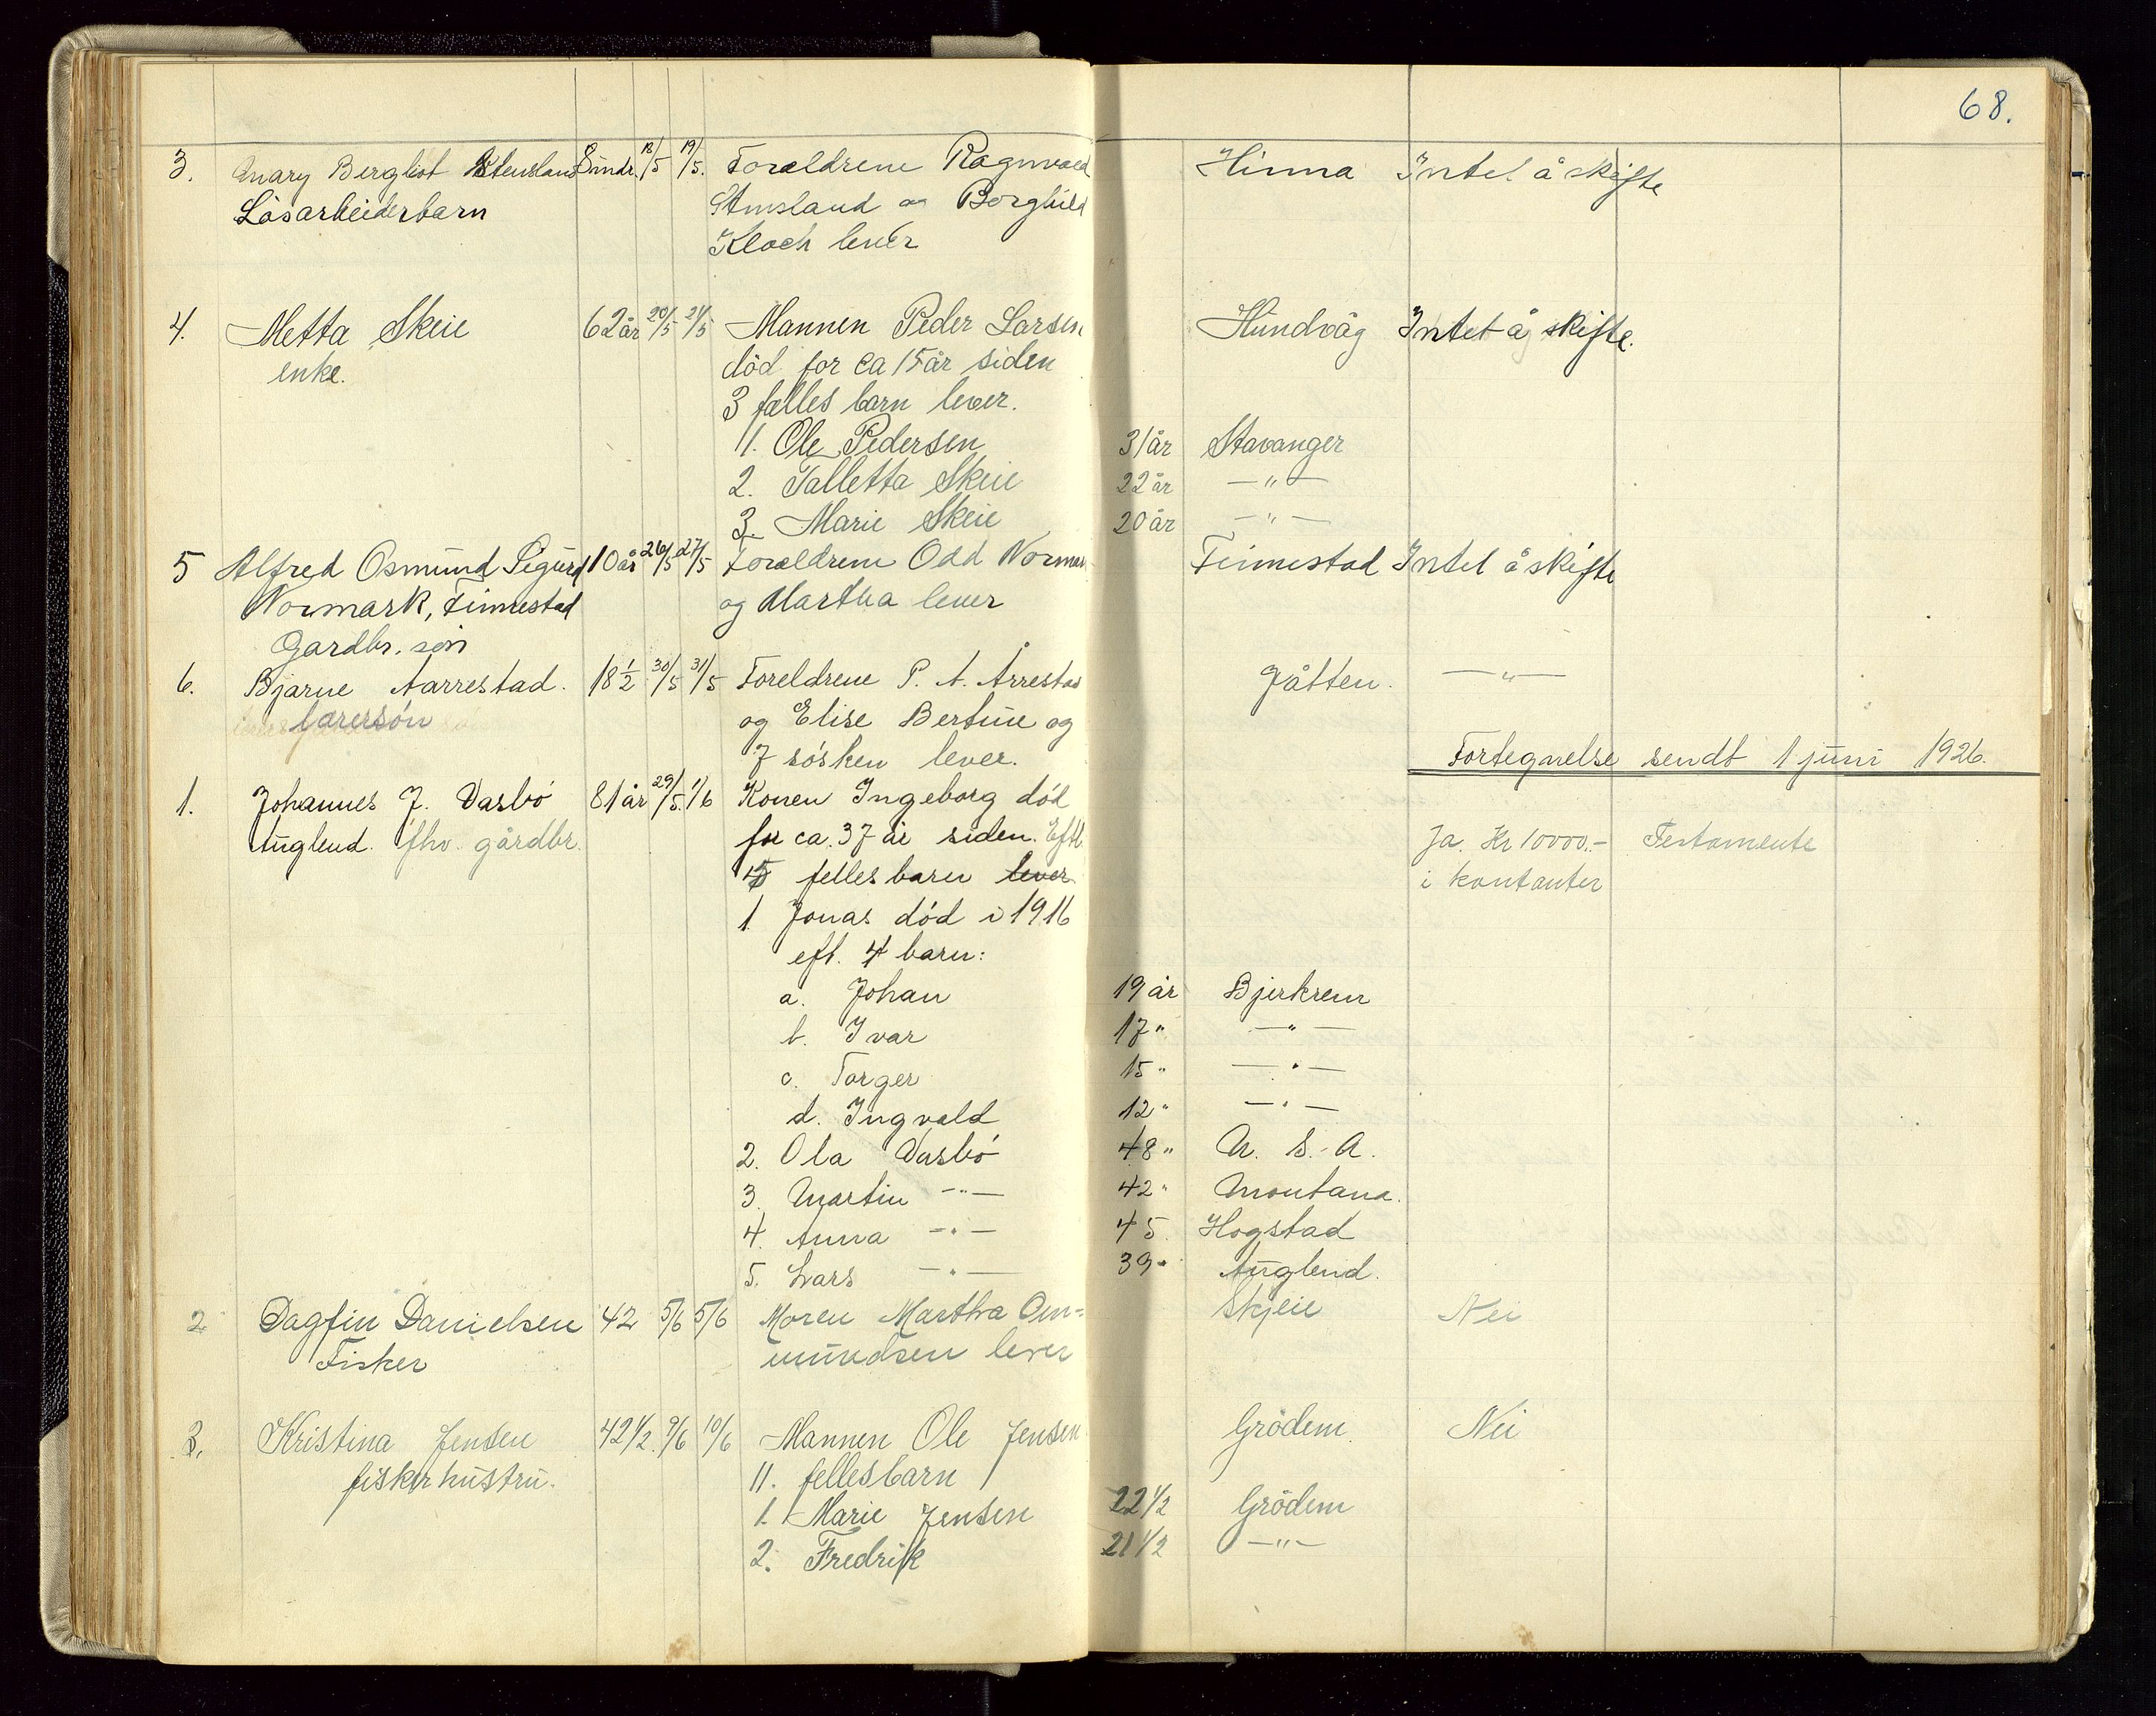 68.
3. Mary Bergliot Stensland 8 mndr. 18/5 19/5. Foreldrene Ragnvald Hinna Intet å skifte
Lösarbeiderbarn Stensland og Borghild
Kloch lever
4. Metta Skeie 62 år 20/5 21/5 Mannen Peder Larsen Hundvåg Intet å skifte.
enke. död for ca 15 år siden
3 falles barn lever.
1. Ole Pedersen 31 år Stavanger
2. Talletta Skeie 22 år — " —
3. Marie Skeie 20 år — " —
5 Alfred Osmund Sigurd 10 år 26/5 27/5 Foreldrene Odd Normark Finnestad Intet å skifte
Normark, Finnestad og Martha lever
Gardbr. søn
6. Bjarne Aarrestad. 18 1/2 30/5 31/5 Foreldrene P. A. Årrestad Jåtten. — " —
lærersön og Elise Bertine og
7 sösken lever. Fortegnelse sendt 1 juni 1926.
1. Johannes J. Vasbö 81 år 29/5. 1/6 Konen Ingeborg död
Auglend. fhv. gårdbr. for ca. 37 år siden. Eftl. Ja. Kr 10000.- Testamente
5 felles barn lever i kontanter
1 Jonas död i 1916
eft. 4 barn:
a. Johan 19 år Bjerkrem
b. Ivar 17 " — " —
c. Torger 15 " — " —
d. Ingvald 12 " — " —
2. Ola Vasbö 48 " U. S. A.
3. Martin — " — 42 " Montana.
4. Anna — " — 45. Hogstad
5. Lars — " — 39 " Auglend.
2 Dagfin Danielsen 42 5/6 5/6 Moren Martha Om= Skjeie Nei
Fisker mundsen lever
3. Kristina Jensen 42 1/2. 9/6 10/6 Mannen Ole Jensen Grödem. Nei
fiskerhustru. 11. fellesbarn
1. Marie Jensen 22 1/2 Grödem
2. Fredrik 21 1/2 — " —